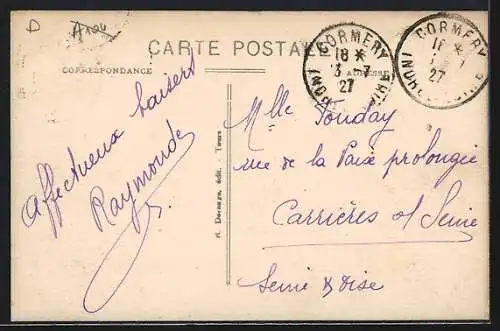 D
CARTE POSTALE
CORRESPONDANCE
ADRESSE
CORMERY
18 *
3 - 7
27
INDRE-ET-LOIRE
CORMERY
18 *
27
INDRE-ET-LOIRE
Affectueux baisers
Raymonde
Mlle Touday
rue de la Paix prolongée
Carrières s/ Seine
Seine & Oise
édit. - Tours